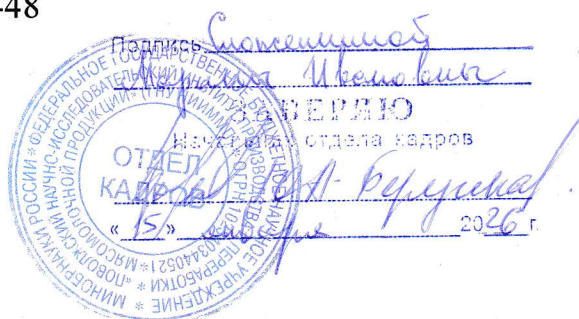 -48
Подпись Сложенкиной
Марины Ивановны
ЗАВЕРЯЮ
Начальник отдела кадров
«15» января 2026 г.
МИНОБРНАУКИ РОССИИ * ФЕДЕРАЛЬНОЕ ГОСУДАРСТВЕННОЕ БЮДЖЕТНОЕ НАУЧНОЕ УЧРЕЖДЕНИЕ *
«ПОВОЛЖСКИЙ НАУЧНО-ИССЛЕДОВАТЕЛЬСКИЙ ИНСТИТУТ ПРОИЗВОДСТВА И ПЕРЕРАБОТКИ
МЯСОМОЛОЧНОЙ ПРОДУКЦИИ»
ОТДЕЛ
КАДРОВ